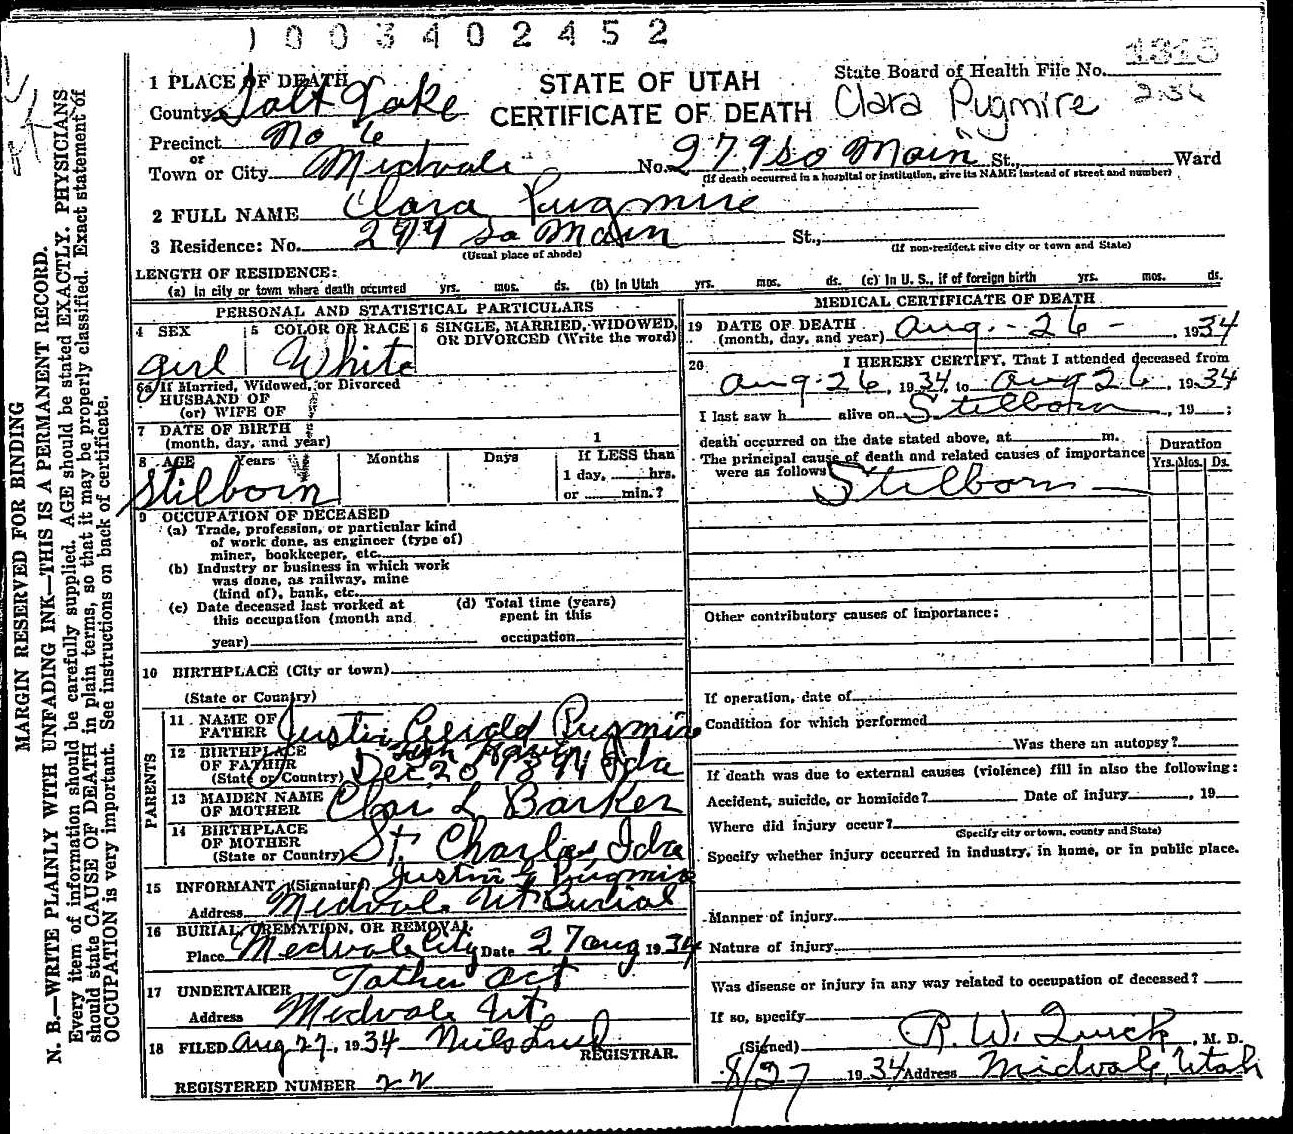 1003402452
1 PLACE OF DEATH
County Salt Lake
Precinct No 6
or
Town or City Midvale
STATE OF UTAH
CERTIFICATE OF DEATH
State Board of Health File No. 1315
Clara Pugmire 236
No. 279 So Main St., Ward
(If death occurred in a hospital or institution, give its NAME instead of street and number)
2 FULL NAME Clara Pugmire
3 Residence: No. 279 So Main St.,
(Usual place of abode) (If non-resident give city or town and State)
LENGTH OF RESIDENCE:
(a) In city or town where death occurred yrs. mos. ds. (b) In Utah yrs. mos. ds. (c) In U. S., if of foreign birth yrs. mos. ds.
PERSONAL AND STATISTICAL PARTICULARS
4 SEX girl
5 COLOR OR RACE White
6 SINGLE, MARRIED, WIDOWED, OR DIVORCED (Write the word)
6a If Married, Widowed, or Divorced
HUSBAND OF
(or) WIFE OF
7 DATE OF BIRTH
(month, day, and year) 1
8 AGE Years Months Days If LESS than
1 day, hrs.
or min.?
Stilborn
9 OCCUPATION OF DECEASED
(a) Trade, profession, or particular kind
of work done, as engineer (type of)
miner, bookkeeper, etc.
(b) Industry or business in which work
was done, as railway, mine
(kind of), bank, etc.
(c) Date deceased last worked at
this occupation (month and
year)
(d) Total time (years)
spent in this
occupation
10 BIRTHPLACE (City or town)
(State or Country)
PARENTS
11 NAME OF FATHER Justin Gerald Pugmire
12 BIRTHPLACE OF FATHER
(State or Country) Fish Haven
Dec 20 1894 Ida
13 MAIDEN NAME OF MOTHER L Barker
14 BIRTHPLACE OF MOTHER
(State or Country) St Charles, Ida
15 INFORMANT (Signature) Justin G Pugmire
Address Midvale Ut Burial
16 BURIAL, CREMATION, OR REMOVAL
Place Medvale City Date 27 aug 1934
17 UNDERTAKER Father act
Address Medvale Ut
18 FILED Aug 27, 1934 Nils Lind
REGISTRAR.
REGISTERED NUMBER 22
MEDICAL CERTIFICATE OF DEATH
19 DATE OF DEATH
(month, day, and year) Aug. - 26 - , 1934
20 I HEREBY CERTIFY, That I attended deceased from
Aug. 26, 1934, to Aug 26, 1934
I last saw h alive on Stilborn, 19 ;
death occurred on the date stated above, at m.
The principal cause of death and related causes of importance
were as follows:
Duration
Yrs. Mos. Ds.
Stilborn
Other contributory causes of importance:
If operation, date of
Condition for which performed
Was there an autopsy?
If death was due to external causes (violence) fill in also the following:
Accident, suicide, or homicide? Date of injury , 19
Where did injury occur?
(Specify city or town, county and State)
Specify whether injury occurred in industry, in home, or in public place.
Manner of injury
Nature of injury
Was disease or injury in any way related to occupation of deceased?
If so, specify
(Signed) R. W. Quick, M. D.
8/27 1934 Address Midvale, Utah
MARGIN RESERVED FOR BINDING
N. B.—WRITE PLAINLY WITH UNFADING INK—THIS IS A PERMANENT RECORD.
Every item of information should be carefully supplied. AGE should be stated EXACTLY. PHYSICIANS
should state CAUSE OF DEATH in plain terms, so that it may be properly classified. Exact statement of
OCCUPATION is very important. See instructions on back of certificate.